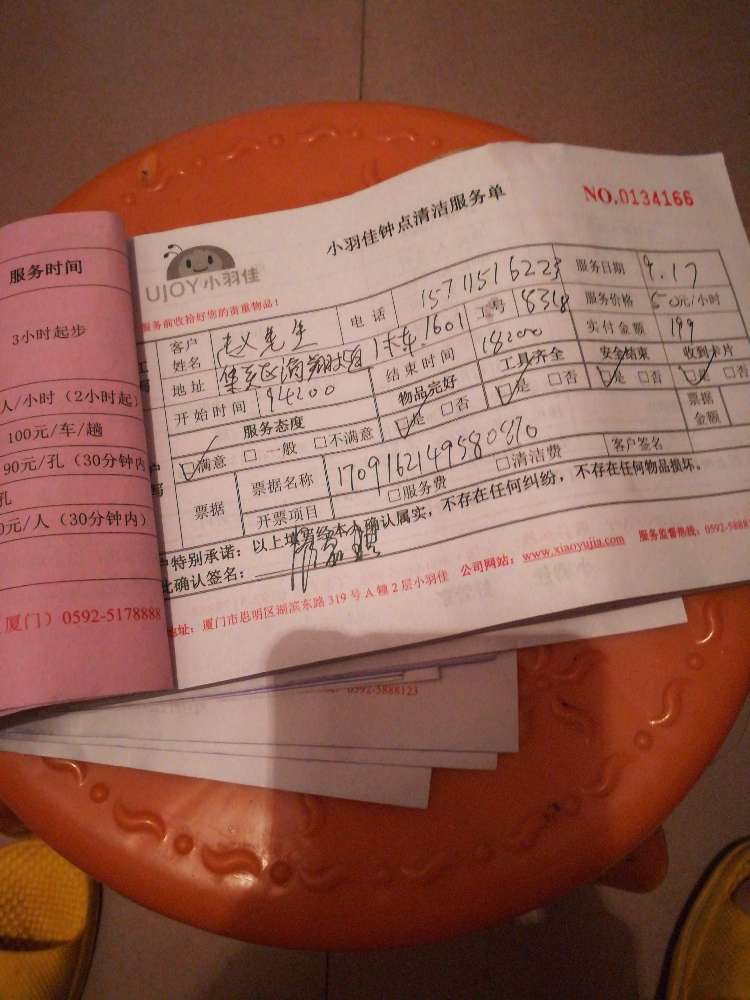 小羽佳钟点清洁服务单
NO.0134166
UJOY小羽佳
服务前收拾好您的贵重物品!
客户姓名 赵先生 电话 15711516223 服务日期 9.17
地址 1601 工号 8318 服务价格 50元/小时
开始时间 结束时间 实付金额 199
服务态度 物品完好 工具齐全 安全结束 收到卡片
满意 □一般 □不满意 是 □否 是 □否 是 □否 是 □否
票据 票据名称 1709162149580870 票据金额
开票项目 □服务费 □清洁费 客户签名
特别承诺:以上填写经本人确认属实,不存在任何纠纷,不存在任何物品损坏。
此确认签名:
地址:厦门市思明区湖滨东路319号A幢2层小羽佳 公司网站:www.xiaoyujia.com 服务监督热线:0592-5888
服务时间
3小时起步
人/小时(2小时起)
100元/车/趟
90元/孔(30分钟内
孔
0元/人(30分钟内)
(厦门)0592-5178888
0592-5888123